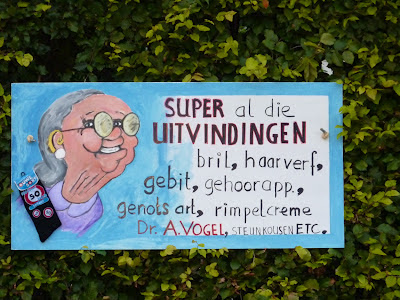 SUPER al die
UITVINDINGEN
bril, haarverf,
gebit, gehoorapp.,
genotsart, rimpelcreme
Dr. A. VOGEL, STEUNKOUSEN ETC.